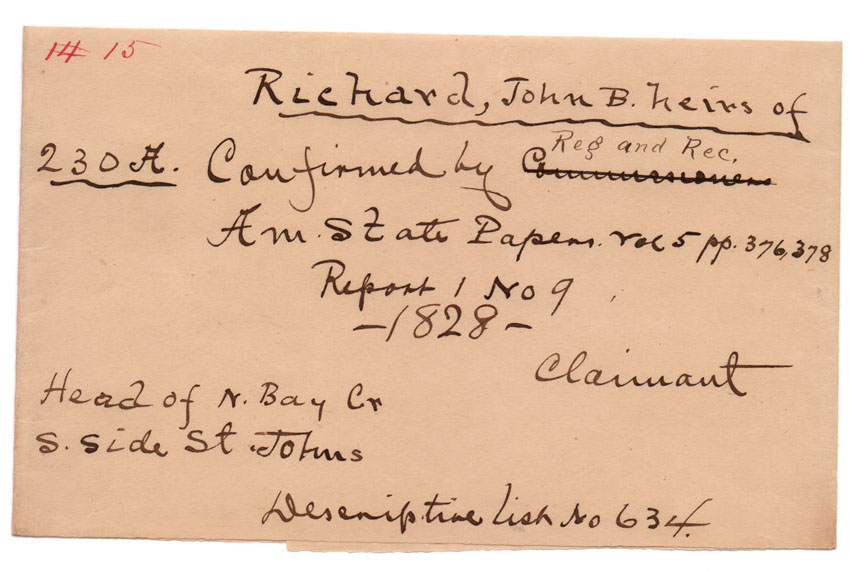 14 15
Richard, John B. heirs of
Reg and Rec.
230 A. Confirmed by Commissioners
Am. State Papers. Vol 5 pp. 376, 378
Report 1 No 9
-1828-
Claimant
Head of N. Bay Cr
S. Side St. Johns
Descriptive list No 634.